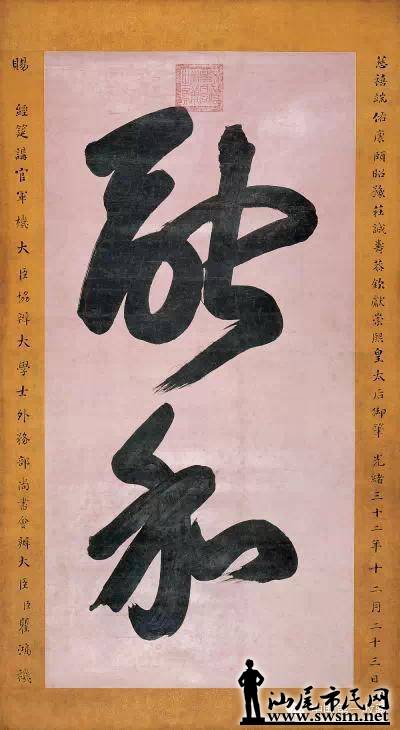 慈禧端佑康頤昭豫莊誠壽恭欽獻崇熙皇太后御筆 光緒三十二年十二月二十三日
融和
賜 經筵講官軍機大臣協辦大學士外務部尚書會辦大臣臣瞿鴻禨
汕尾市民网
www.swsm.net